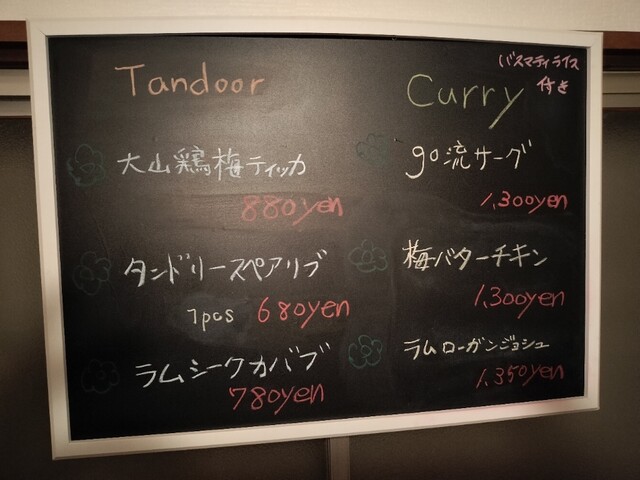 Tandoor
大山鶏梅ティッカ
880yen
タンドリースペアリブ
1pcs 680yen
ラムシークカバブ
780yen
Curry
バスマティライス
付き
go流サーグ
1,300yen
梅バターチキン
1,300yen
ラムローガンジョシュ
1,350yen